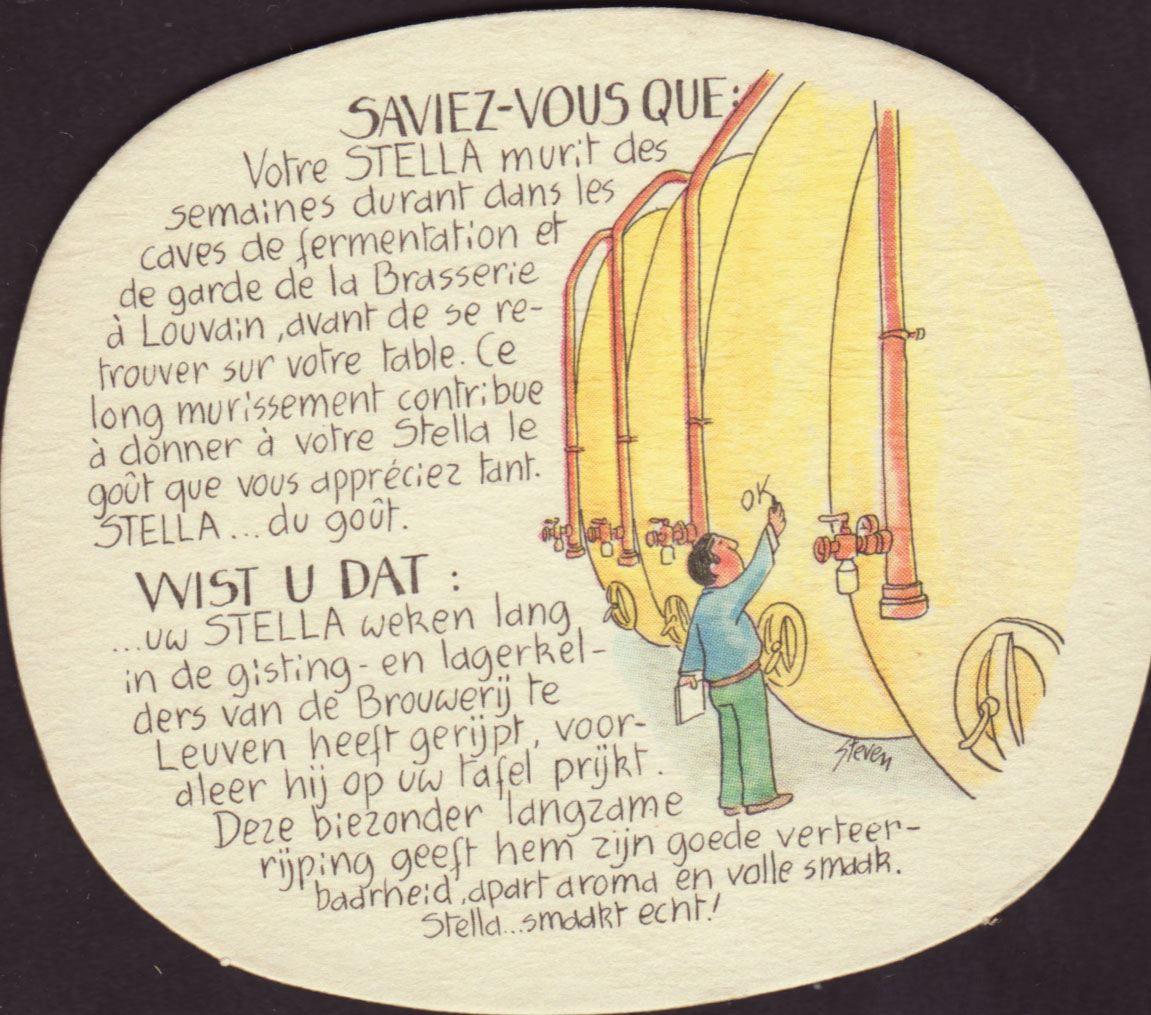 SAVIEZ-VOUS QUE:
Votre STELLA murit des
semaines durant dans les
caves de fermentation et
de garde de la Brasserie
à Louvain, avant de se re-
trouver sur votre table. Ce
long murissement contribue
à donner à votre Stella le
goût que vous appréciez tant.
STELLA... du goût.
OK
WIST U DAT :
...uw STELLA weken lang
in de gisting- en lagerkel-
ders van de Brouwerij te
Leuven heeft gerijpt, voor-
aleer hij op uw tafel prijkt.
Deze biezonder langzame
rijping geeft hem zijn goede verteer-
baarheid, apart aroma en volle smaak.
Stella...smaakt echt!
Steven